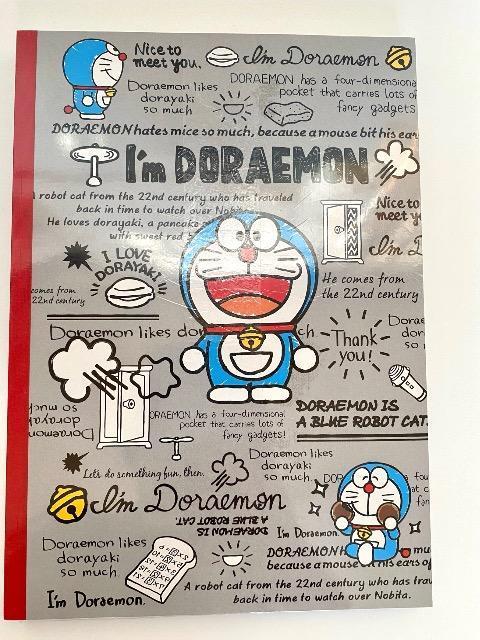 Nice to
meet you.
I'm Doraemon
Doraemon likes
dorayaki
so much
DORAEMON has a four-dimensiona
pocket that carries lots of
fancy gadgets
DORAEMON hates mice so much, because a mouse bit his ear
I'm DORAEMON
robot cat from the 22nd century who has traveled
back in time to watch over Nobita.
He loves dorayaki, a pancake
with sweet red b
Nice to
meet y
I'm D
I LOVE
DORAYAKI
comes from
22nd century
He comes from
the 22nd century
Doraemon likes dor
ch
Thank
you!
Dorae
dor
so
Doraemon
dorayaki
so much
DORAEMON has a four-dimensional
pocket that carries lots of
fancy gadgets!
DORAEMON IS
A BLUE ROBOT CAT.
Let's do something fun, then.
Doraemon likes
dorayaki
so much.
DOR
fou
at c
fan
I'm Doraemon
DORAEMON IS
A BLUE ROBOT CAT.
I'm Doraemon.
Doraemon likes
dorayaki
so much.
DORAEMON h
mu
because a mouse
his ears of
I'm Doraemon.
A robot cat from the 22nd century who has trav
back in time to watch over Nobita.